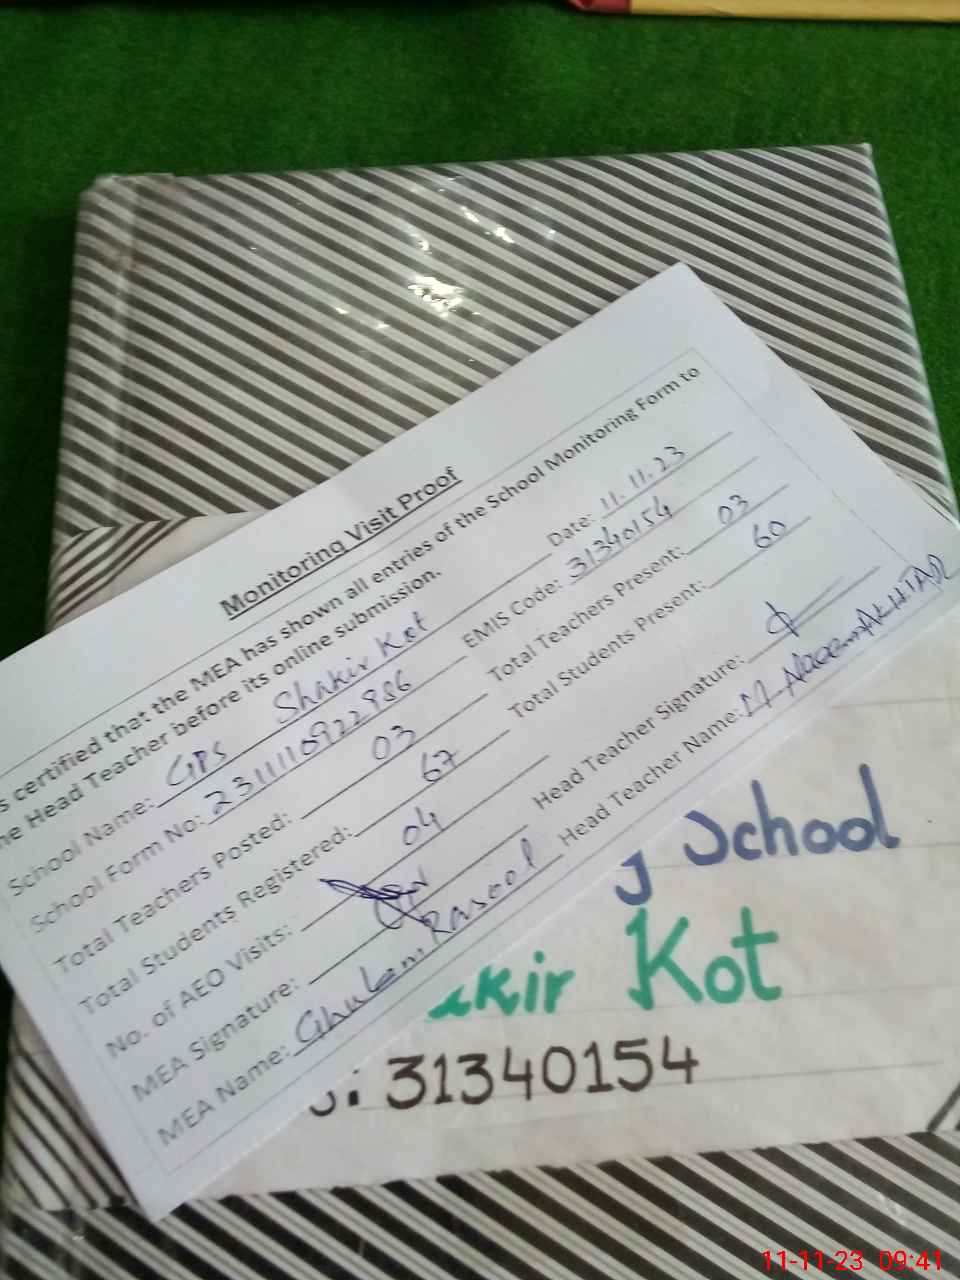 Monitoring Visit Proof
s certified that the MEA has shown all entries of the School Monitoring Form to
he Head Teacher before its online submission.
Date: 11.11.23
School Name: GPS Shakir Kot
EMIS Code: 31340154
School Form No: 231111092
Total Teachers Present: 03
Total Teachers Posted: 03
Total Students Present: 60
Total Students Registered: 67
No. of AEO Visits: 04
Head Teacher Signature:
MEA Signature:
Head Teacher Name: M Naeem AKHTAR
MEA Name: Ghulam Rasool
g School
akir Kot
: 31340154
11-11-23 09:41